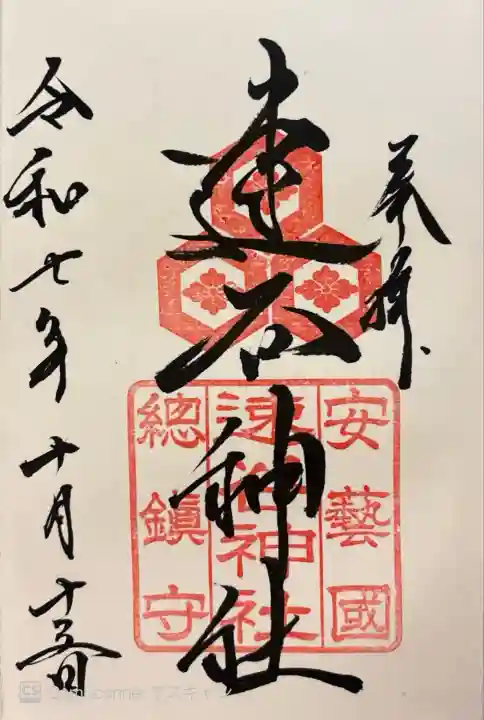 奉拝
速谷神社
安藝國
速谷神社
總鎮守
令和七年十月十五日
CS CamScanner でスキャン